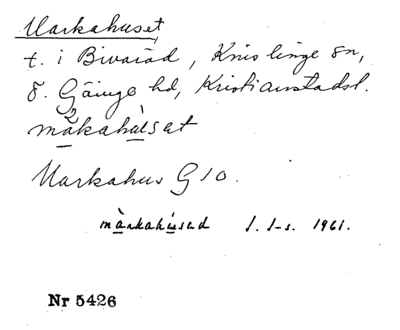 Markahuset
t. i Bivaröd, Knislinge sn,
ö. Göinge hd, Kristianstadsl.
màkahúsat
Markahus G 10.
màrkahúsad I. I-s. 1961.
Nr 5426